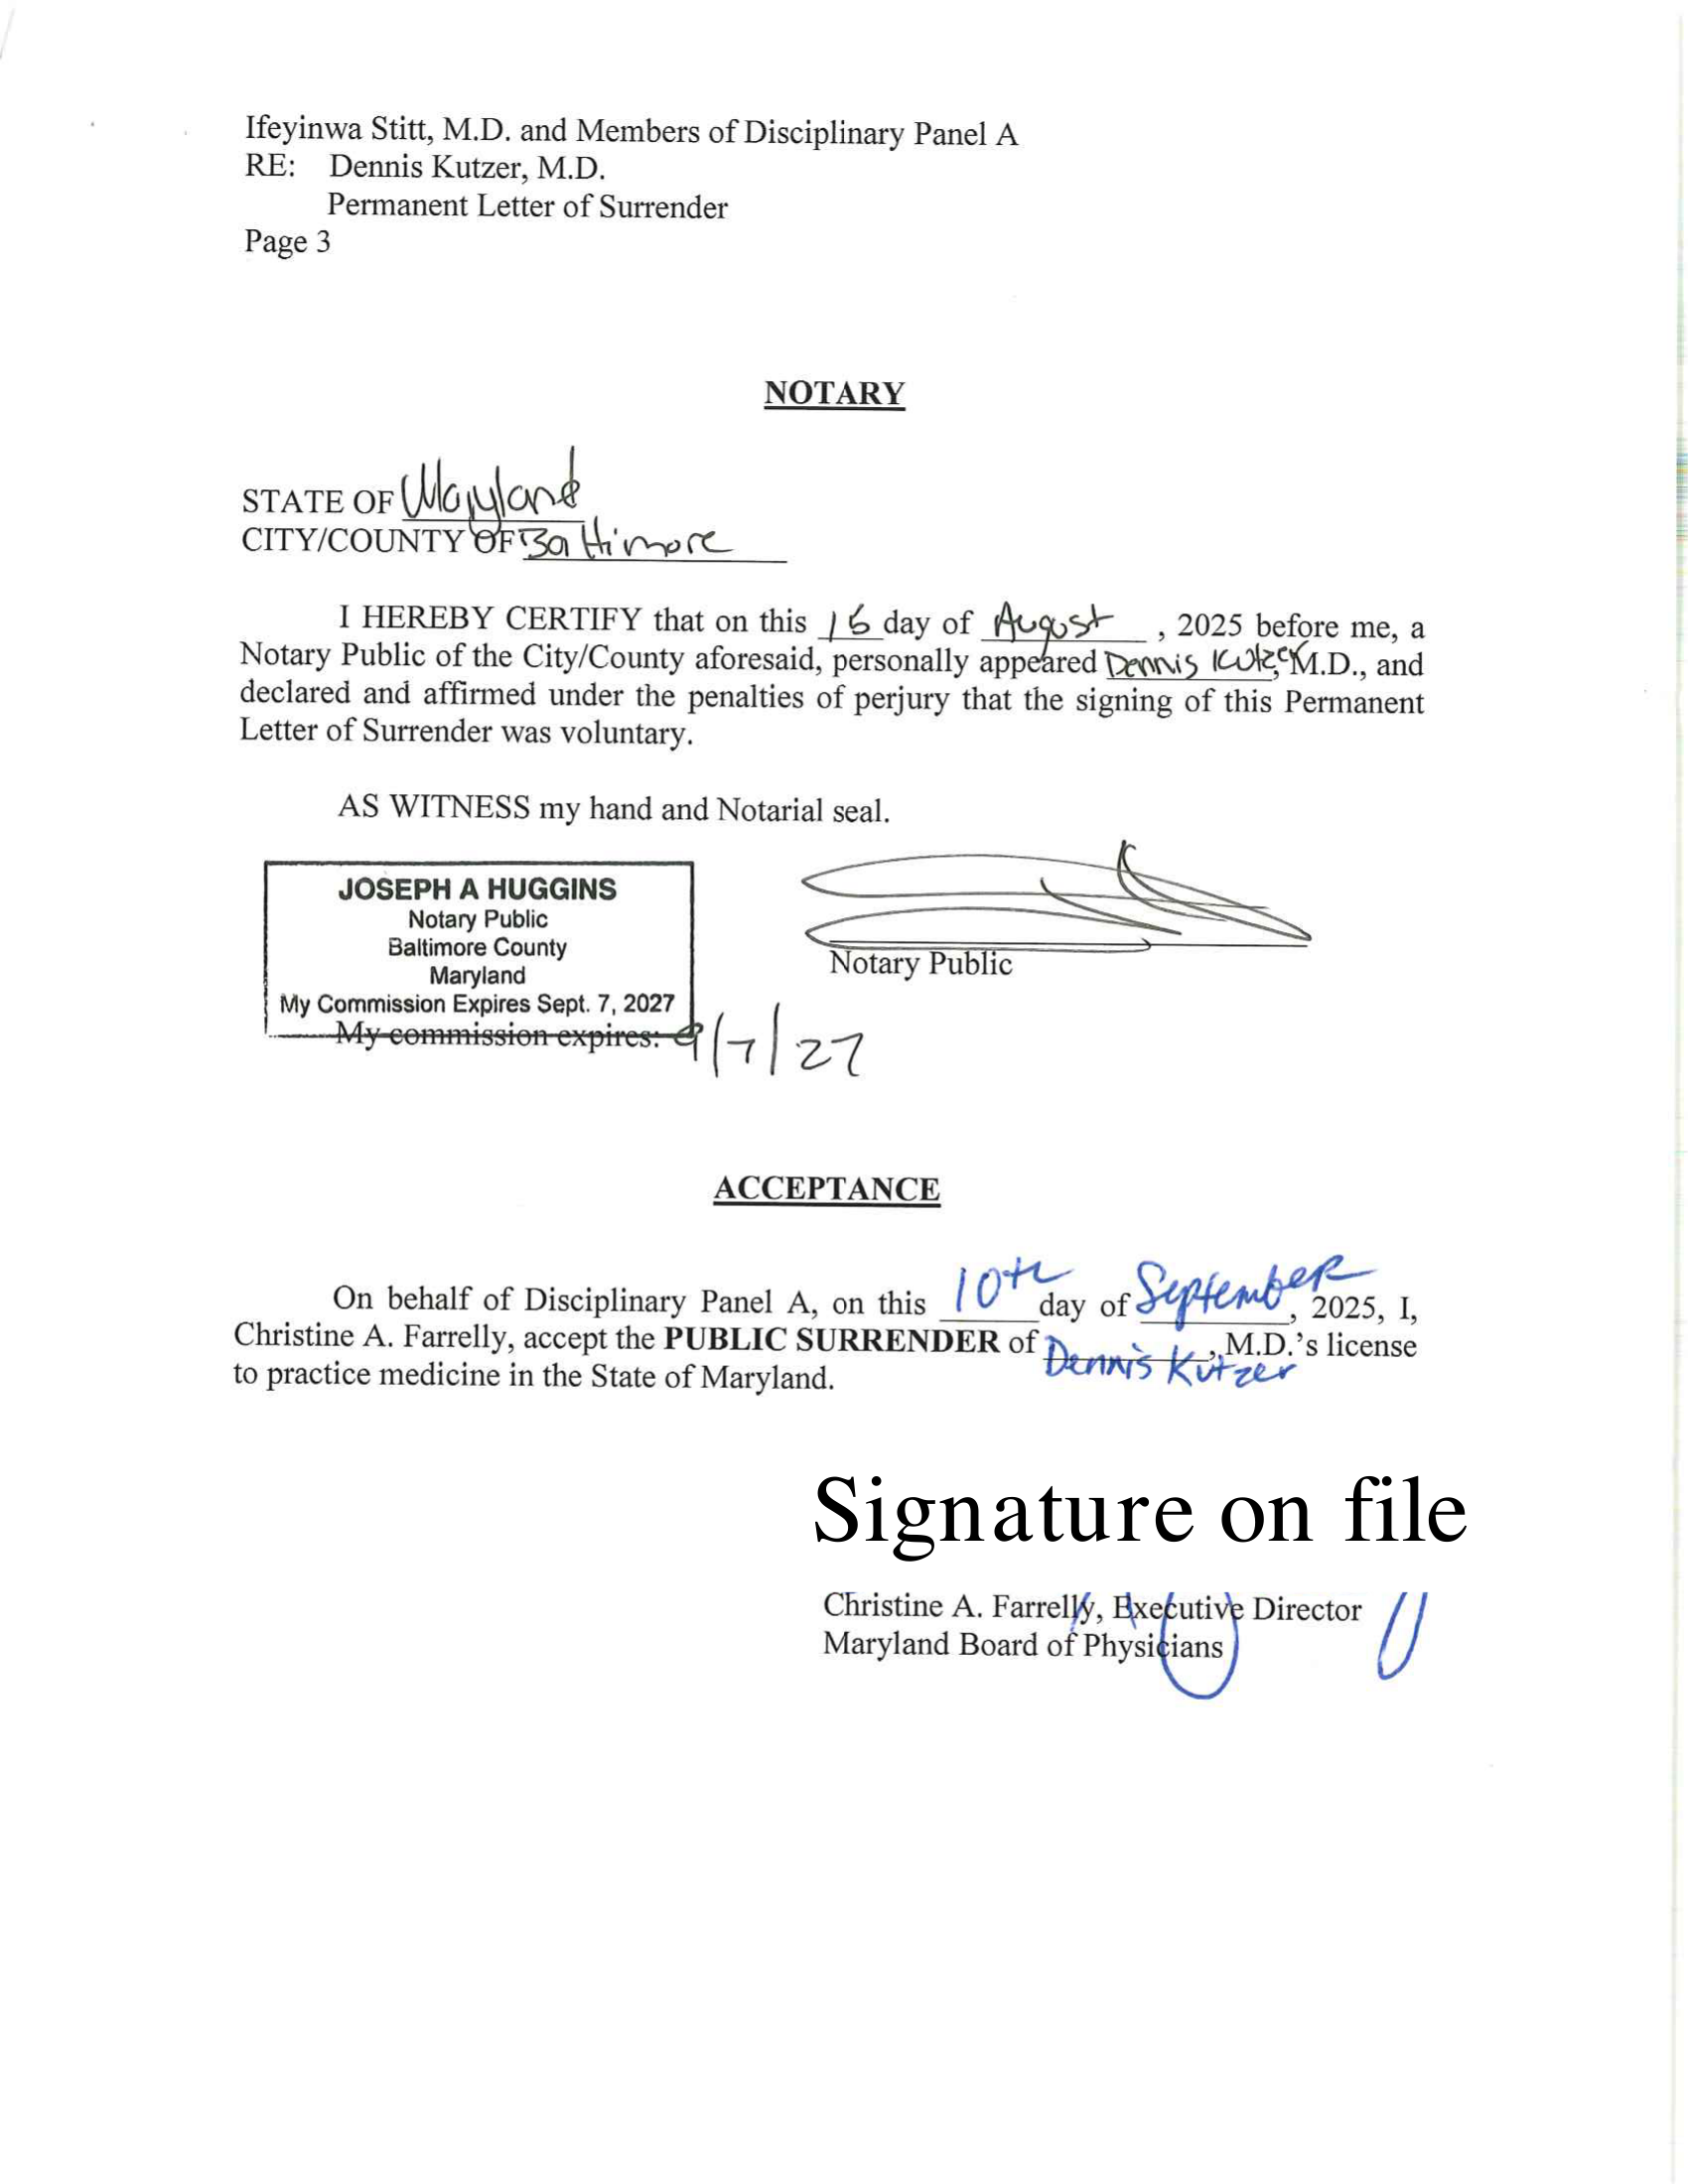 Ifeyinwa Stitt, M.D. and Members of Disciplinary Panel A
RE: Dennis Kutzer, M.D.
Permanent Letter of Surrender
Page 3
NOTARY
STATE OF Maryland
CITY/COUNTY OF Baltimore
I HEREBY CERTIFY that on this 16 day of August, 2025 before me, a
Notary Public of the City/County aforesaid, personally appeared Dennis Kutzer, M.D., and
declared and affirmed under the penalties of perjury that the signing of this Permanent
Letter of Surrender was voluntary.
AS WITNESS my hand and Notarial seal.
JOSEPH A HUGGINS
Notary Public
Baltimore County
Maryland
My Commission Expires Sept. 7, 2027
Notary Public
My commission expires: 9/7/27
ACCEPTANCE
On behalf of Disciplinary Panel A, on this 10th day of September, 2025, I,
Christine A. Farrelly, accept the PUBLIC SURRENDER of Dennis Kutzer, M.D.'s license
to practice medicine in the State of Maryland.
Signature on file
Christine A. Farrelly, Executive Director
Maryland Board of Physicians